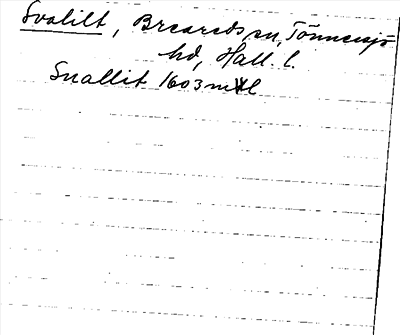 Svalilt, Breareds sn, Tönnersjö
hd, Hall. l.
Snallit 1603 mtl